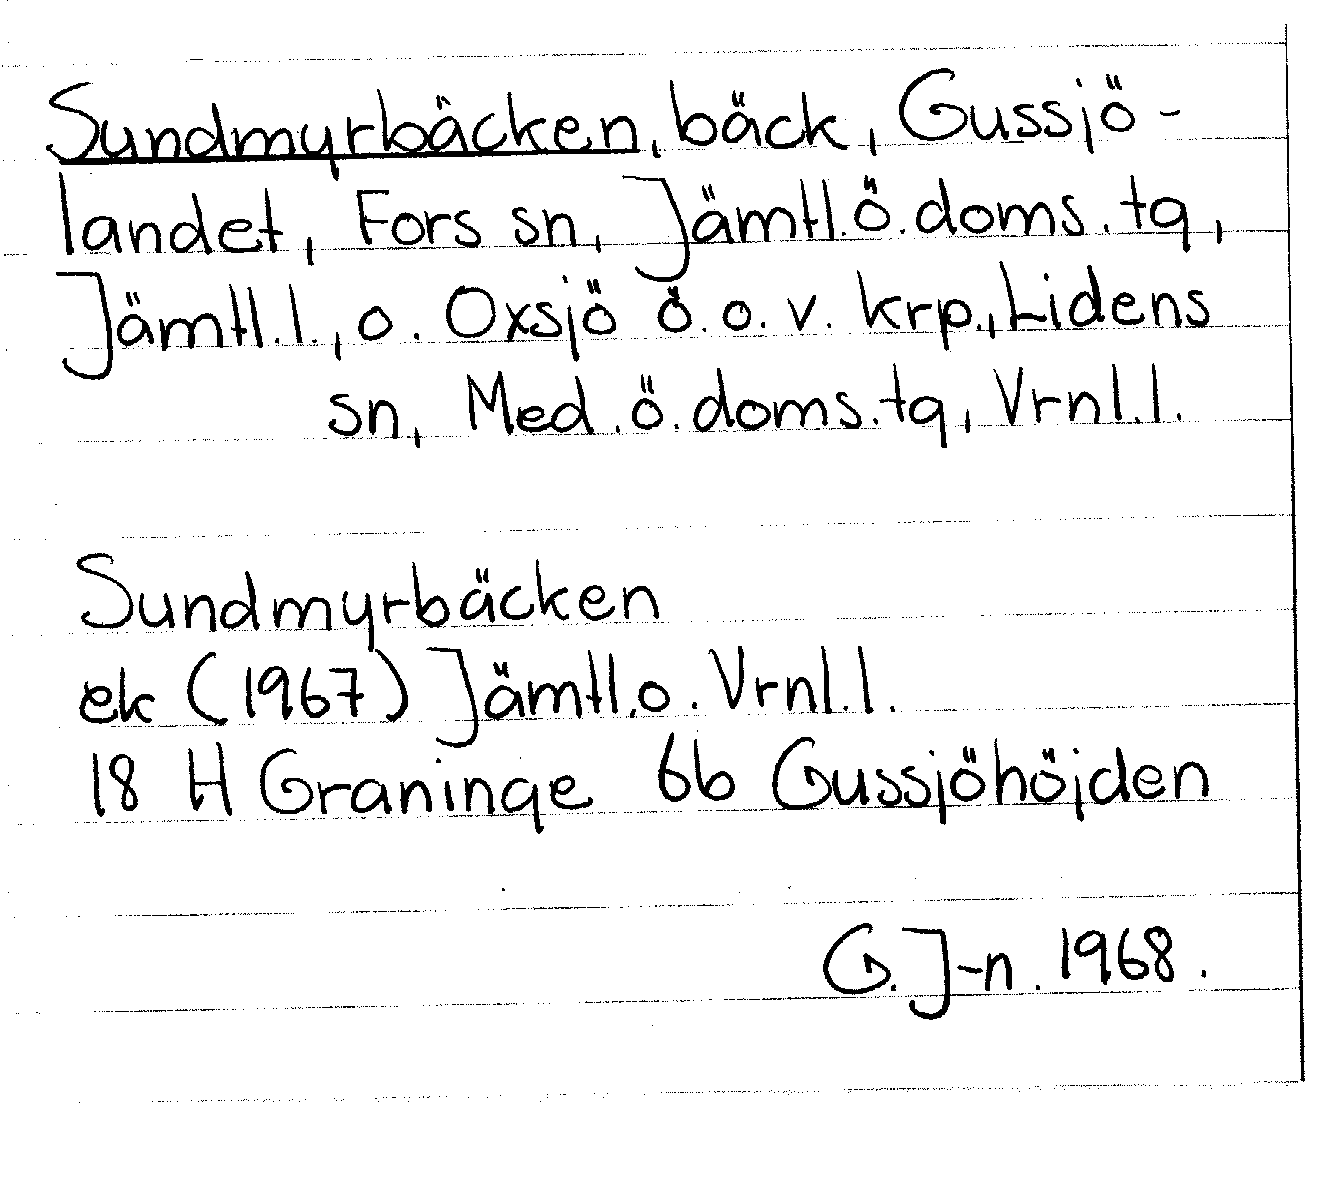 Sundmyrbäcken, bäck, Gussjö-
landet, Fors sn, Jämtl.ö.doms.tg,
Jämtl.l., o. Oxsjö ö.o.v. krp., Lidens
sn, Med.ö.doms.tg, Vrnl.l.
Sundmyrbäcken
ek (1967) Jämtl.o. Vrnl.l.
18 H Graninge 6b Gussjöhöjden
G. J-n. 1968.